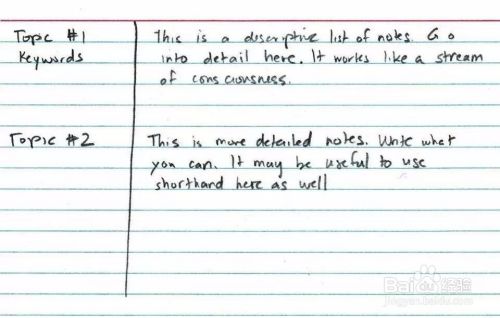 Topic #1
Keywords
This is a descriptive list of notes. Go
into detail here. It works like a stream
of consciousness.
Topic #2
This is more detailed notes. Write what
you can. It may be useful to use
shorthand here as well
Baidu经验
jingyan.baidu.com